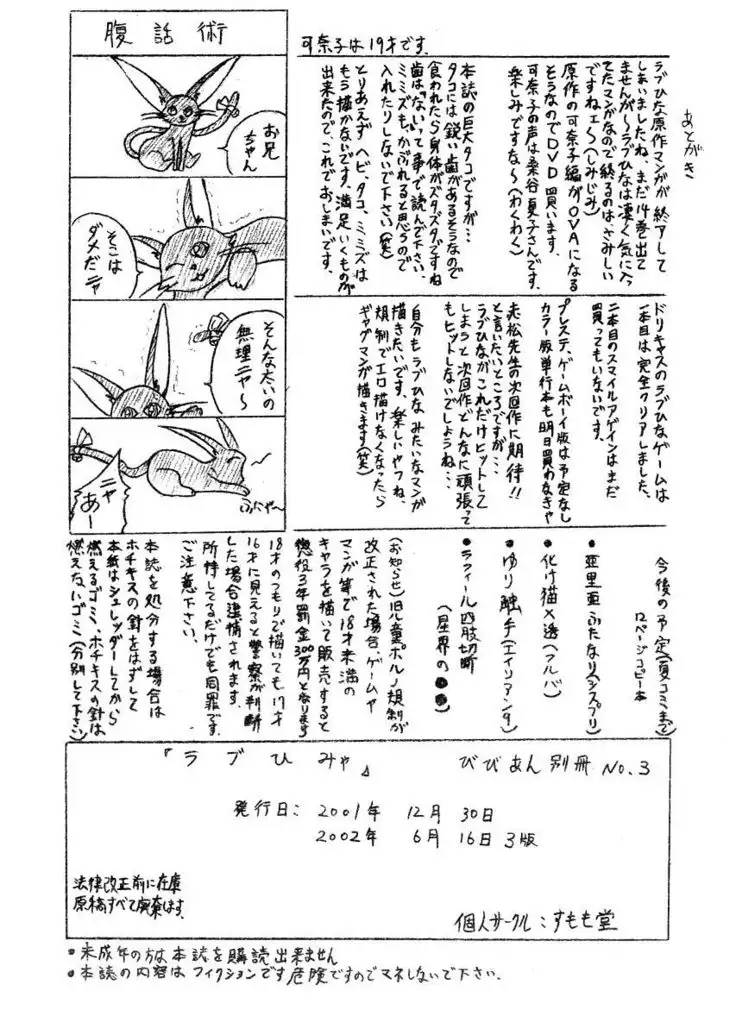 あとがき
ラブひな原作マンガが終了して
しまいましたね、まだ14巻出て
ませんが〜ラブひなは凄く気に入っ
てたマンガなので終るのはさみしい
ですねェ〜(しみじみ)
原作の可奈子編がOVAになる
そうなのでDVD買います。
可奈子の声は桑谷夏子さんです。
楽しみですな〜(わくわく)
本誌の巨大タコですが…
タコには鋭い歯があるそうなので
食われたら身体がズタズタですね
歯は"ない"って事で読んで下さい。
ミミズも、かぶれると思うので
入れたりしないで下さい(笑)
とりあえずヘビ、タコ、ミミズは
もう描かないです、満足いくものが
出来たので、これでおしまいです。
可奈子は19才です。
腹話術
お兄
ちゃん
そこは
ダメだニャ
そんなたいの
無理ニャ〜
ニャ
あー
ふにゃ〜
ドリキャスのラブひなゲームは
一本目は完全クリアしました、
二本目のスマイルアゲインはまだ
買ってもいないです。
プレステ、ゲームボーイ版は予定なし
カラー版単行本も明日買わなきゃ
赤松先生の次回作に期待!!
と言いたいところですが…
ラブひながこれだけヒットして
しまうと次回作どんなに頑張って
もヒットしないでしょうね…
自分もラブひなみたいなマンガ
描きたいです、楽しいやつね、
規制でエロ描けなくなったら
ギャグマンガ描きます(笑)
今後の予定(夏コミまで)
12ページコピー本
●亜里亜ふたなり(シスプリ)
●化け猫×透(フルバ)
●ゆり触手(エイリアン9)
●ラフィール四肢切断
(星界の●●)
(お知らせ)旧児童ポルノ規制が
改正された場合、ゲームや
マンガ等で18才未満の
キャラを描いて販売すると
懲役3年罰金300万円となります
18才のつもりで描いても17才
16才に見えると警察が判断
した場合逮捕されます。
所持してるだけでも同罪です
ご注意下さい。
本誌を処分する場合は
ホチキスの針をはずして
本紙はシュレッダーしてから
燃えるゴミ、ホチキスの針は
燃えないゴミ(分別して下さい)
『ラブひみゃ』 びびあん別冊 No.3
発行日: 2001年 12月 30日
2002年 6月 16日 3版
法律改正前に在庫
原稿すべて廃棄します。
個人サークル:すもも堂
●未成年の方は本誌を購読出来ません
●本誌の内容はフィクションです危険ですのでマネしないで下さい.